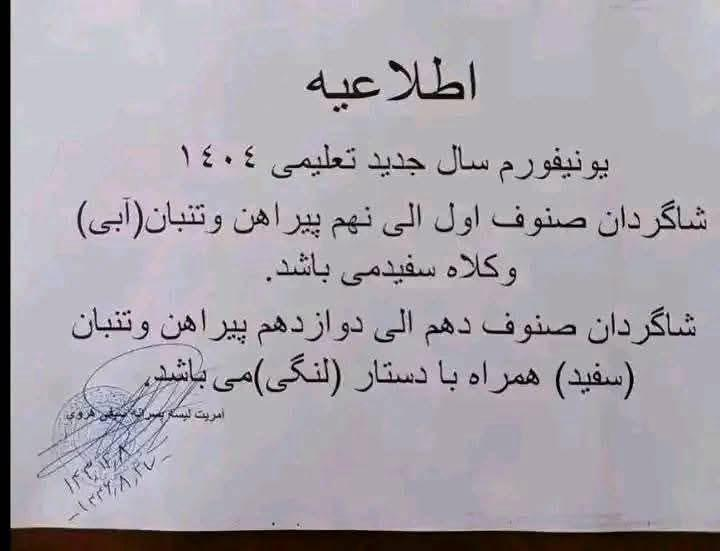 اطلاعیه
یونیفورم سال جدید تعلیمی ١٤٠٤
شاگردان صنوف اول الی نهم پیراهن وتنبان(آبی)
وکلاه سفیدمی باشد.
شاگردان صنوف دهم الی دوازدهم پیراهن وتنبان
(سفید) همراه با دستار (لنگی)می باشد.
امریت لیسه پسرانه سیفی هروی